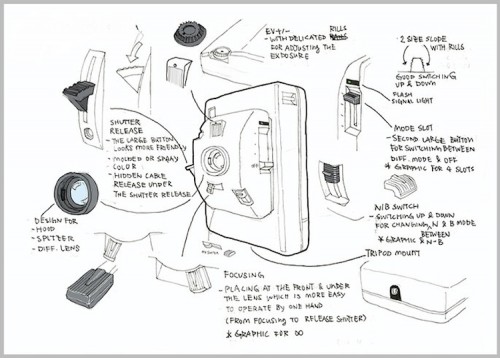 EV+/-
- WITH DELICATED RILLS
FOR ADJUSTING THE
EXPOSURE
2 SIZE SLODE
WITH RILLS
GOOD SWITCHING
UP & DOWN
FLASH
SIGNAL LIGHT
SHUTTER
RELEASE
- THE LARGE BUTTON
LOOKS MORE FRIENDLY
- MOLDED OR SPRAY
COLOR
- HIDDEN CABLE
RELEASE UNDER
THE SHUTTER RELEASE
MODE SLOT
- SECOND LARGE BUTTON
FOR SWITCHING BETWEEN
DIFF. MODE & OFF
* GRAPHIC FOR 4 SLOTS
N/B SWITCH
- SWITCHING UP & DOWN
FOR CHANGING N & B MODE
BETWEEN
* GRAPHIC N-B
DESIGN FOR
- HOOD
- SPLTZER
- DIFF. LENS
TRIPOD MOUNT
FOCUSING
- PLACING AT THE FRONT & UNDER
THE LENS WHICH IS MORE EASY
TO OPERATE BY ONE HAND
(FROM FOCUSING TO RELEASE SHUTTER)
* GRAPHIC FOR ∞